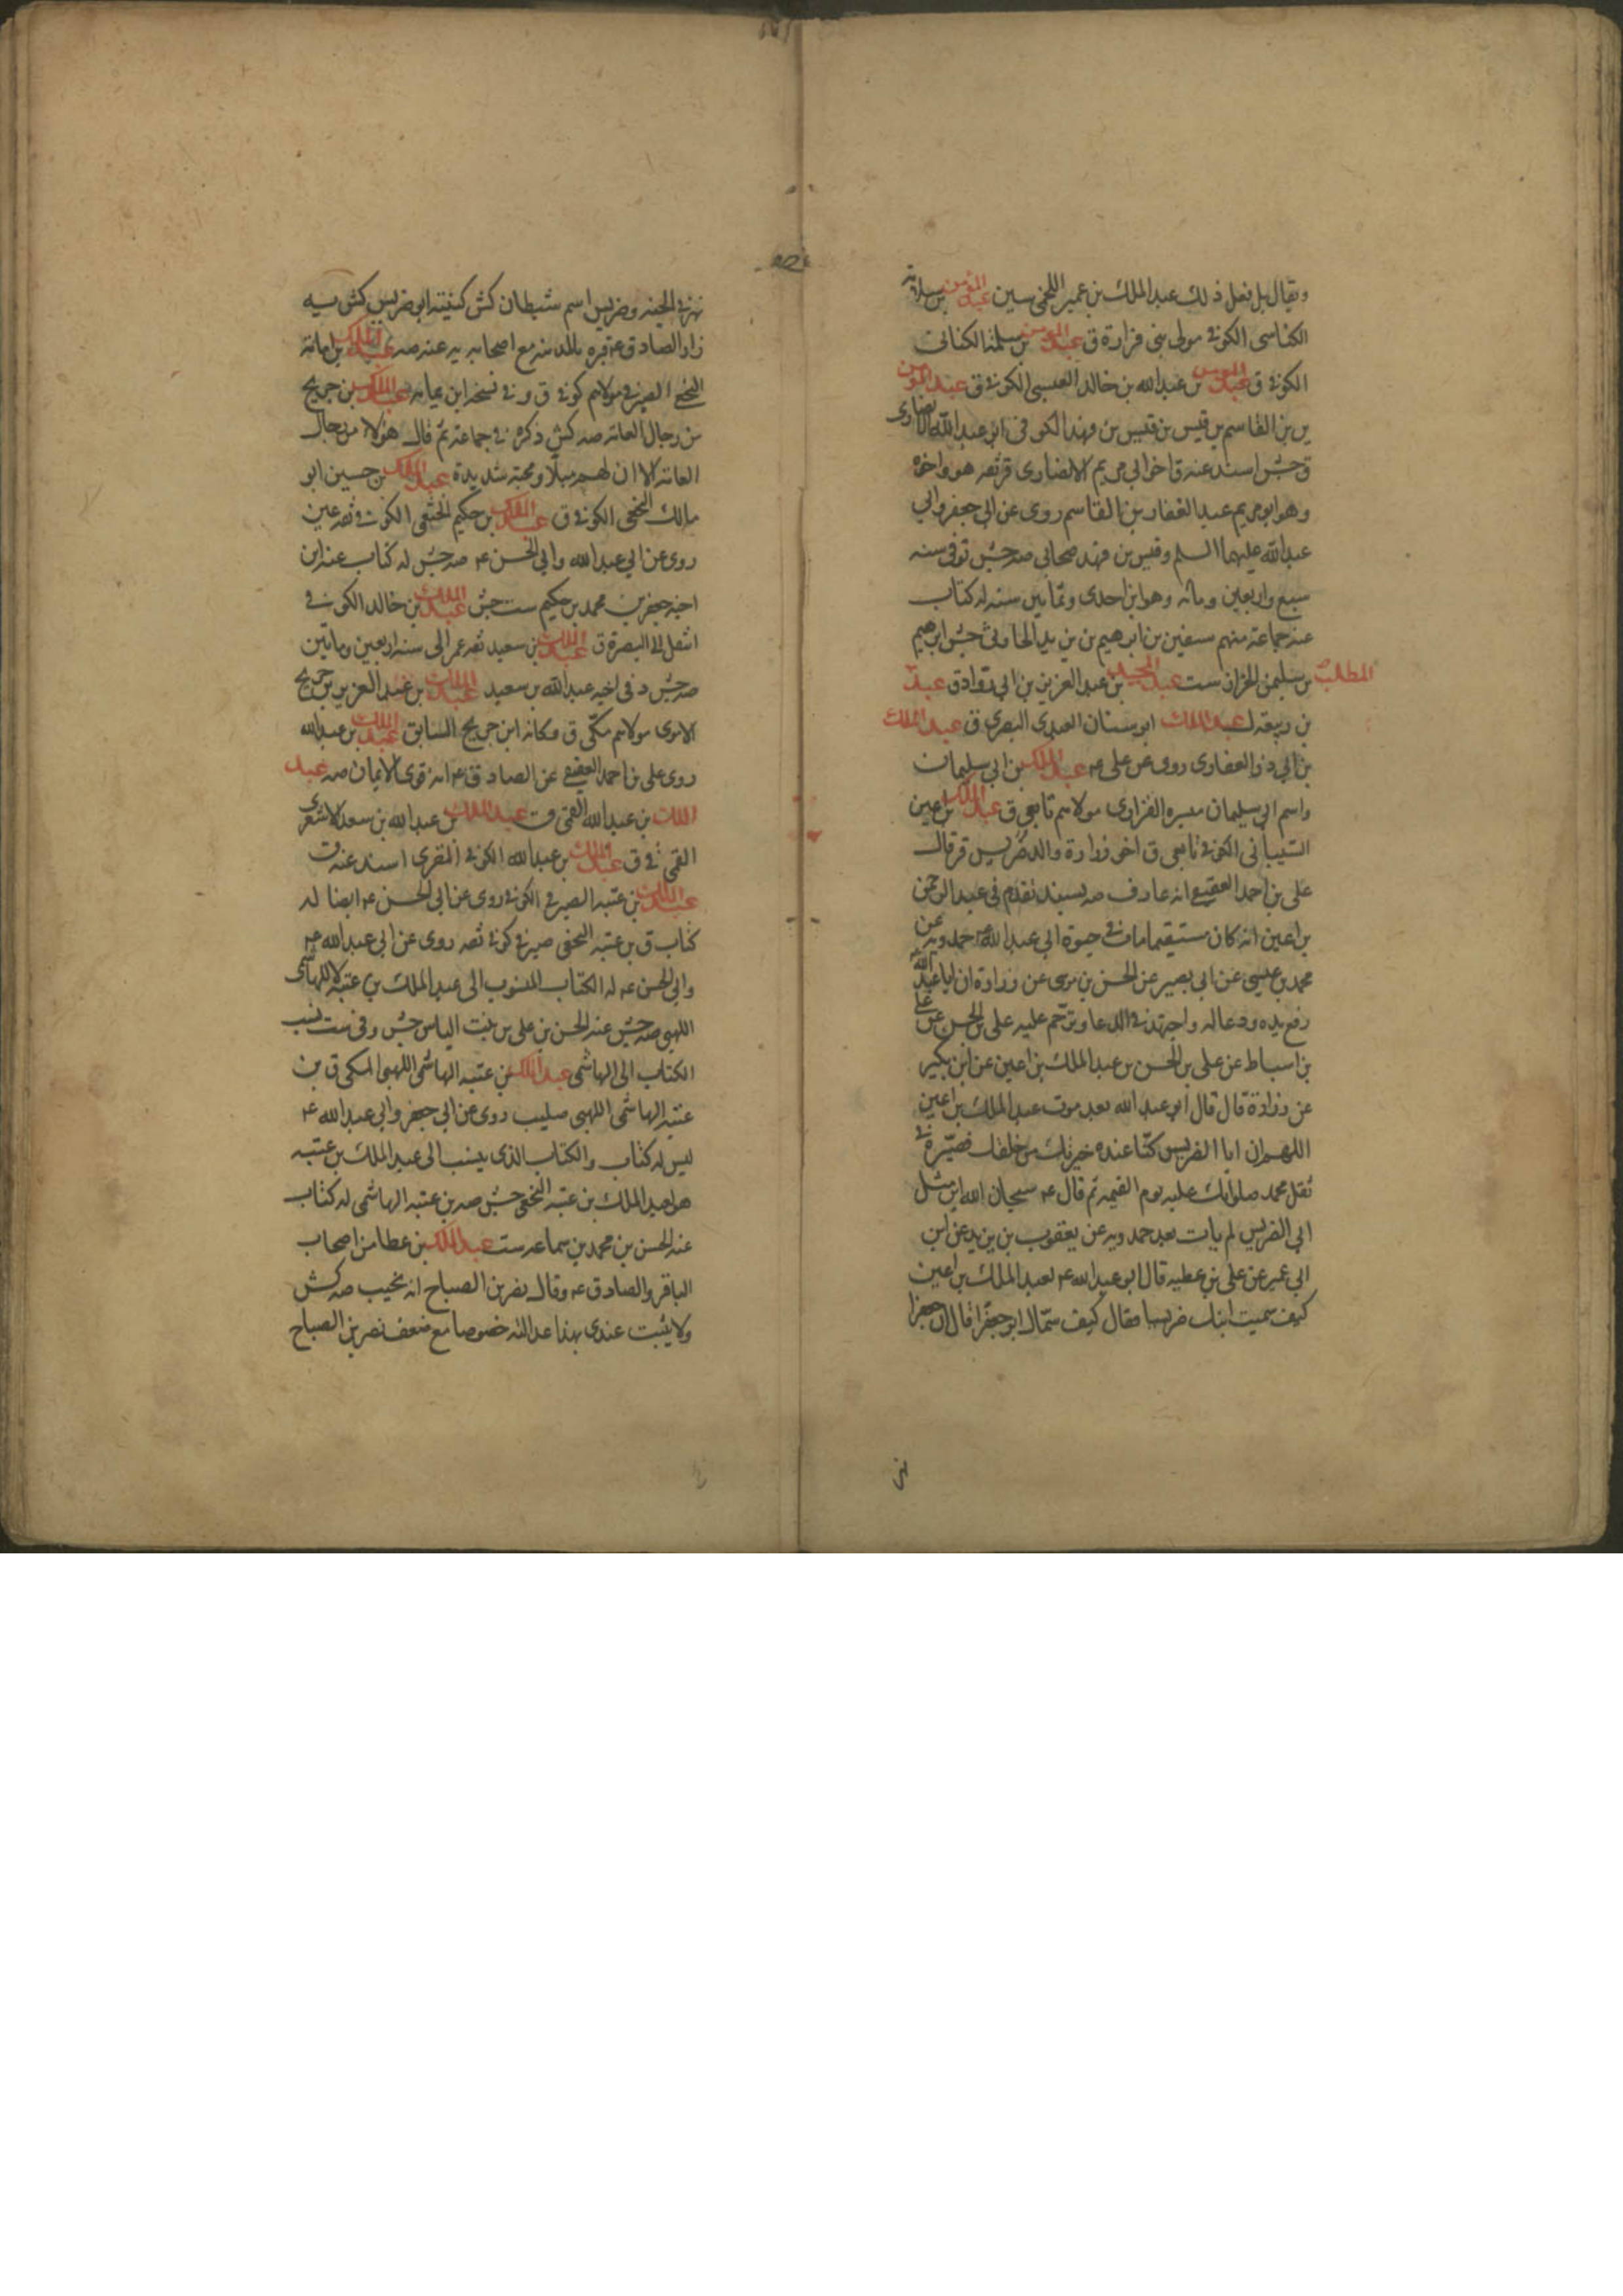 ويقال بل فعل ذلك عبد الملك بن عمير اللخمي سين عبد المؤمن بن سلامة
الكناسى الكوفى مولى بنى فزارة ق عبد المومن بن سلمة الكنانى
الكوفى ق عبد المومن بن عبدالله بن خالد العبسى الكوفى ق عبد المومن
بن القاسم بن قيس بن قيس بن فهد الكوفى ابو عبد الله الانصارى
ق جش اسند عنه ق اخو ابى مريم الانصارى قر ثقه هو واخوه
وهو ابو مريم عبد الغفار بن القاسم روى عن ابى جعفر وابى
عبد الله عليهما السلم وقيس بن فهد صحابى صه جش توفى سنه
سبع واربعين ومائه وهو ابن احدى وثمانين سنه له كتاب
عنه جماعة منهم سفين بن ابرهيم بن يزيد الحارثى جش ابرهيم
بن سليمن الخزاز ست عبد المجيد بن عبد العزيز بن ابى رواد ق عبد المطلب
بن ربيعه ل عبد الملك ابو سنان العبدى البصرى ق عبد الملك
بن ابى ذر الغفارى روى عن على ع عبد الملك بن ابى سليمان
واسم ابى سليمان ميسره الفزارى مولاهم تابعى ق عبد الملك بن اعين
الشيبانى الكوفى تابعى ق اخو زرارة والد ضريس قر قال
على بن احمد العقيقى انه عارف صه بسند تقدم فى عبد الرحمن
بن اعين انه كان مستقيما مات فى حيوة ابى عبد الله ع حمدويه عن
محمد بن عيسى عن ابى بصير عن الحسن بن موسى عن زرارة ان ابا عبد الله
رفع يده ودعا له واجتهد فى الدعا وترحم عليه على بن الحسن عن على
بن اسباط عن على بن الحسن بن عبد الملك بن اعين عن ابن بكير
عن زرارة قال قال ابو عبد الله بعد موت عبد الملك بن اعين
اللهم ان ابا الضريس كنا عنده خيرتك من خلقك فصيره فى
ثقل محمد صلواتك عليه يوم القيمه ثم قال ع سبحان الله اين مثل
ابى الضريس لم يات بعد حمدويه عن يعقوب بن يزيد عن ابن
ابى عمير عن على بن عطيه قال ابو عبد الله ع لعبد الملك بن اعين
كيف سميت ابنك ضريسا فقال كيف سماك ابوك جعفرا قال ان جعفرا
نهر فى الجنه وضريس اسم شيطان كش كنيته ابو ضريس كش يه
زار الصادق ع قبره بالمدينه مع اصحابه يه عنه صه عبد الملك بن
النخعى الصيرفى مولاهم كوفى ق وفى نسخه ابن عبد الملك بن جريج
من رجال العامه صه كش ذكره فى جماعة ثم قال هولاء من رجال
العامه الا ان لهم ميلا ومحبة شديدة عبد الملك بن حسين ابو
مالك النخعى الكوفى ق عبد الملك بن حكيم الخثعمى الكوفى ثقه عين
روى عن ابى عبد الله وابى الحسن ع صه جش له كتاب عنه ابن
اخيه جعفر بن محمد بن حكيم ست جش عبد الملك بن خالد الكوفى
انتقل الى البصرة ق عبد الملك بن سعيد ثقه عمر الى سنه اربعين وماتين
صه جش د فى اخيه عبد الله بن سعيد عبد الملك بن عبد العزيز بن جريج
الاموى مولاهم مكى ق وكانه ابن جريج السابق عبد الملك بن عبد الله
روى على بن احمد العقيقى عن الصادق ع انه قوى الايمان صه عبد
الملك بن عبد الله القمى ق عبد الملك بن عبد الله بن سعد الاشعرى
القمى ق عبد الملك بن عبد الله الكوفى المقرى اسند عنه ق
عبد الملك بن عتبه الصيرفى الكوفى روى عن ابى الحسن ع ايضا له
كتاب ق بن عتبه النخعى صيرفى كوفى ثقه روى عن ابى عبد الله ع
وابى الحسن ع له الكتاب المنسوب الى عبد الملك بن عتبه الهاشمى
اللهبى صه جش عنه الحسن بن على بن بنت الياس جش وفى ست نسب
الكتاب الى الهاشمى عبد الملك بن عتبه الهاشمى اللهبى المكى ق بن
عتبه الهاشمى اللهبى صليب روى عن ابى جعفر وابى عبد الله ع
ليس له كتاب والكتاب الذى ينسب الى عبد الملك بن عتبه
هو لعبد الملك بن عتبه النخعى جش صه بن عتبه الهاشمى له كتاب
عنه الحسن بن محمد بن سماعه ست عبد الملك بن عطا من اصحاب
الباقر والصادق ع وقال نصر بن الصباح انه نجيب صه كش
ولا يثبت عندى بهذا عدالته خصوصا مع ضعف نصر بن الصباح